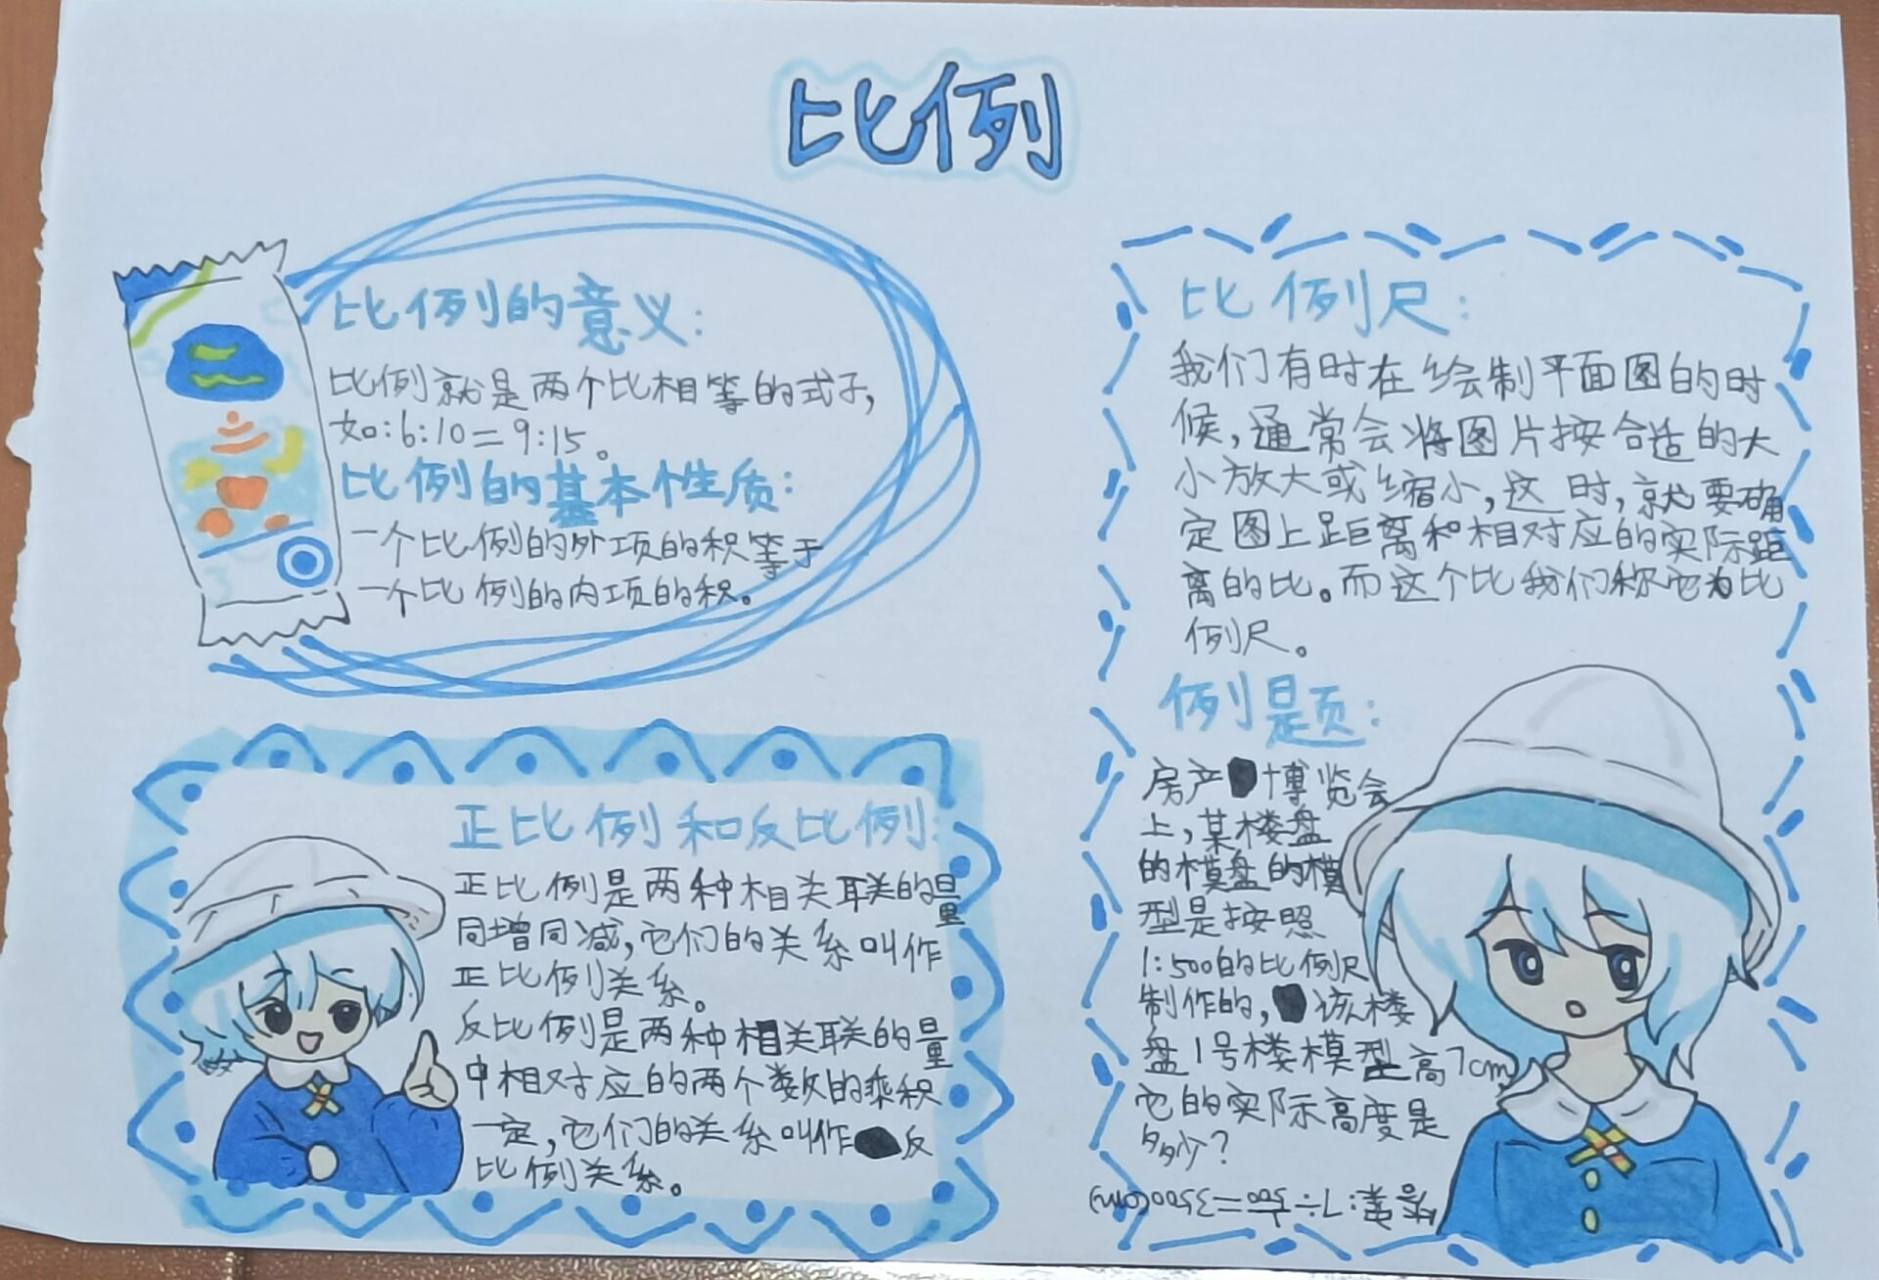 比例
比例的意义:
比例就是两个比相等的式子,
如:6:10=9:15。
比例的基本性质:
一个比例的外项的积等于
一个比例的内项的积。
正比例和反比例:
正比例是两种相关联的量
同增同减,它们的关系叫作
正比例关系。
反比例是两种相关联的量
中相对应的两个数的乘积
一定,它们的关系叫作反
比例关系。
比例尺:
我们有时在绘制平面图的时
候,通常会将图片按合适的大
小放大或缩小,这时,就要确
定图上距离和相对应的实际距
离的比。而这个比我们称它为比
例尺。
例题:
房产博览会
上,某楼盘
的模盘的模
型是按照
1:500的比例尺
制作的,该楼
盘1号楼模型高7cm,
它的实际高度是
多少?
答案:7÷1/500=3500(cm)